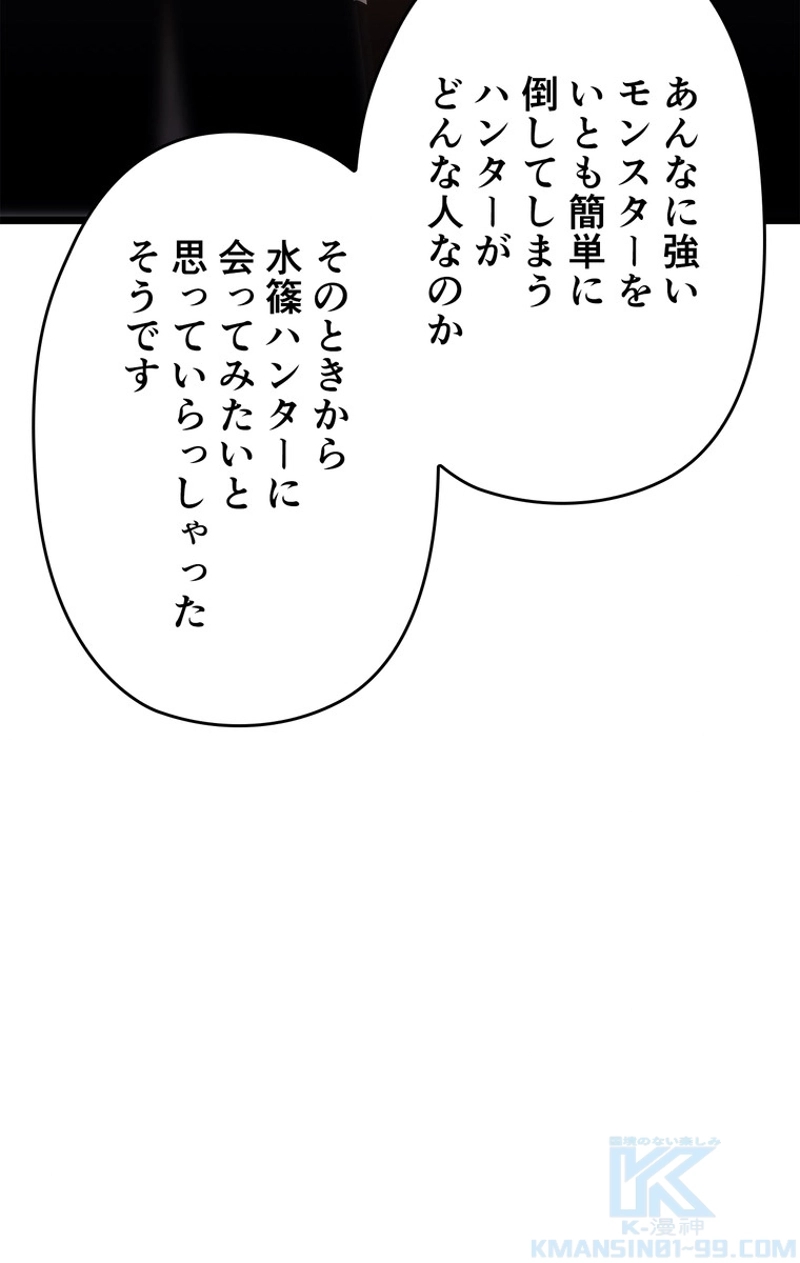 あんなに強い
モンスターを
いとも簡単に
倒してしまう
ハンターが
どんな人なのか
そのときから
水篠ハンターに
会ってみたいと
思っていらっしゃった
そうです
国境のない楽しみ
K-漫神
KMANSIN01-99.COM